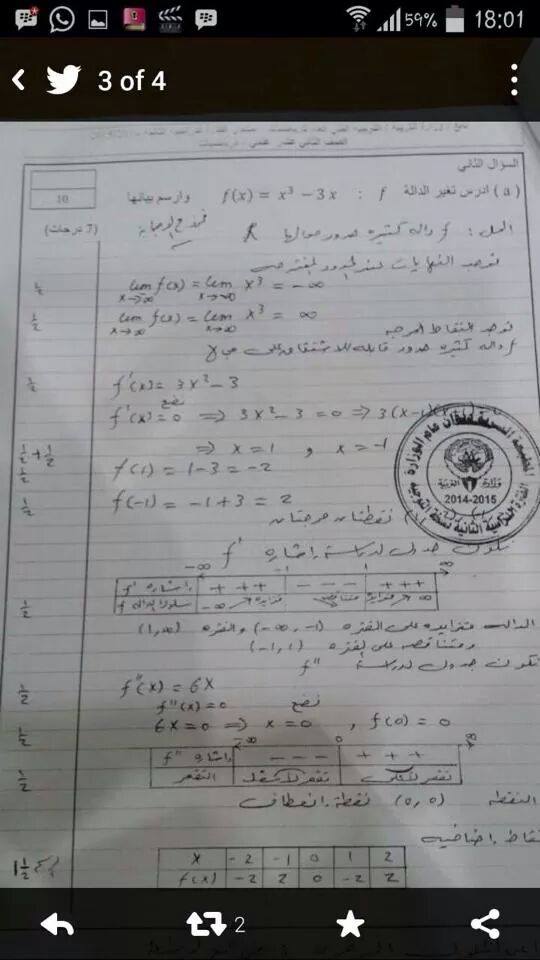 59% 18:01
3 of 4
السؤال الثاني
10
(a) ادرس تغير الدالة f : f(x) = x³ − 3x وارسم بيانها
(7 درجات) نموذج الإجابة
الحل : f دالة كثيرة حدود مجالها R
نوجد النهايات عند الحدود المفتوحة
½ lim x→-∞ f(x) = lim x→-∞ x³ = -∞
½ lim x→∞ f(x) = lim x→∞ x³ = ∞
نوجد النقاط الحرجة
f دالة كثيرة حدود قابلة للاشتقاق على مجالها
½ f'(x) = 3x² - 3
نضع
f'(x) = 0 ⟹ 3x² - 3 = 0 ⟹ 3(x-1)
½+½ ⟹ x = 1 , x = -1
½ f(1) = 1 - 3 = -2
½ f(-1) = -1 + 3 = 2
2014-2015
نقطتان حرجتان
نكون جدول لدراسة إشارة f'
-∞ -1 1 ∞
إشارة f' +++ --- +++
½ سلوك الدالة f -∞ متزايدة متناقصة متزايدة ∞
الدالة متزايدة على الفترة (-∞, -1) والفترة (1, ∞)
ومتناقصة على الفترة (-1, 1)
نكون جدول لدراسة f"
½ f"(x) = 6x
نضع f"(x) = 0
½ 6x = 0 ⟹ x = 0 , f(0) = 0
-∞ 0 ∞
إشارة f" --- +++
½ التقعر تقعر لأسفل تقعر لأعلى
النقطة (0,0) نقطة انعطاف
نقاط إضافية
x -2 -1 0 1 2
1½ f(x) -2 2 0 -2 2
2